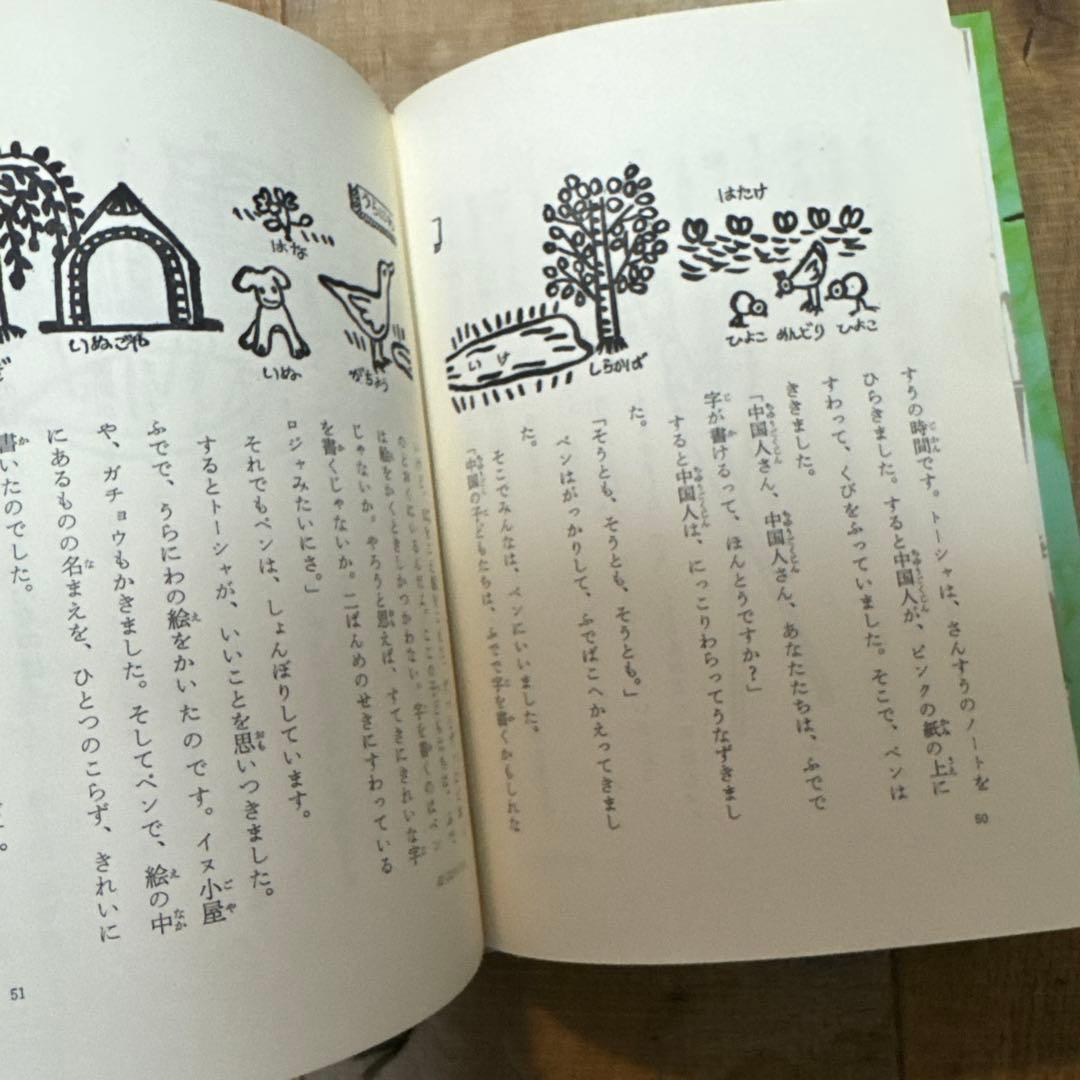 はたけ
ひよこ
めんどり
ひよこ
しらかば
いけ
すうの時間です。トーシャは、さんすうのノートを
ひらきました。すると中国人が、ピンクの紙の上に
すわって、くびをふっていました。そこで、ペンは
ききました。
「中国人さん、中国人さん、あなたたちは、ふでで
字が書けるって、ほんとうですか？」
すると中国人は、にっこりわらってうなずきまし
た。
「そうとも、そうとも、そうとも。」
ペンはがっかりして、ふでばこへかえってきまし
た。
そこでみんなは、ペンにいいました。
「中国の子どもたちは、ふでで字を書くかもしれな
50
がちょう
はな
いぬ
いぬごや
は絵をかくときしかつかわない。字を書くのはペン
じゃないか。やろうと思えば、すてきにきれいな字
を書くじゃないか。二ばんめのせきにすわっている
ロジャみたいにさ。」
それでもペンは、しょんぼりしています。
するとトーシャが、いいことを思いつきました。
ふでで、うらにわの絵をかいたのです。イヌ小屋
や、ガチョウもかきました。そしてペンで、絵の中
にあるものの名まえを、ひとつのこらず、きれいに
書いたのでした。
51